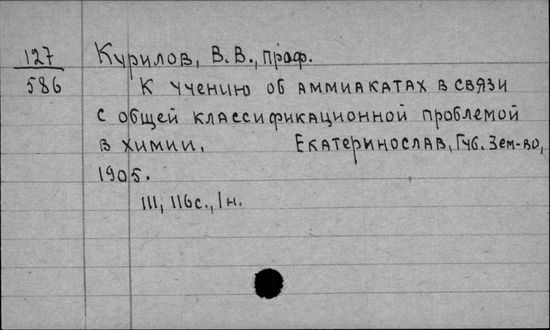 127
586
Курилов, В.В., проф.
К учению об аммиакатах в связи
с общей классификационной проблемой
в химии. Екатеринослав, Губ. Зем-во,
1905.
III, 116с., 1н.